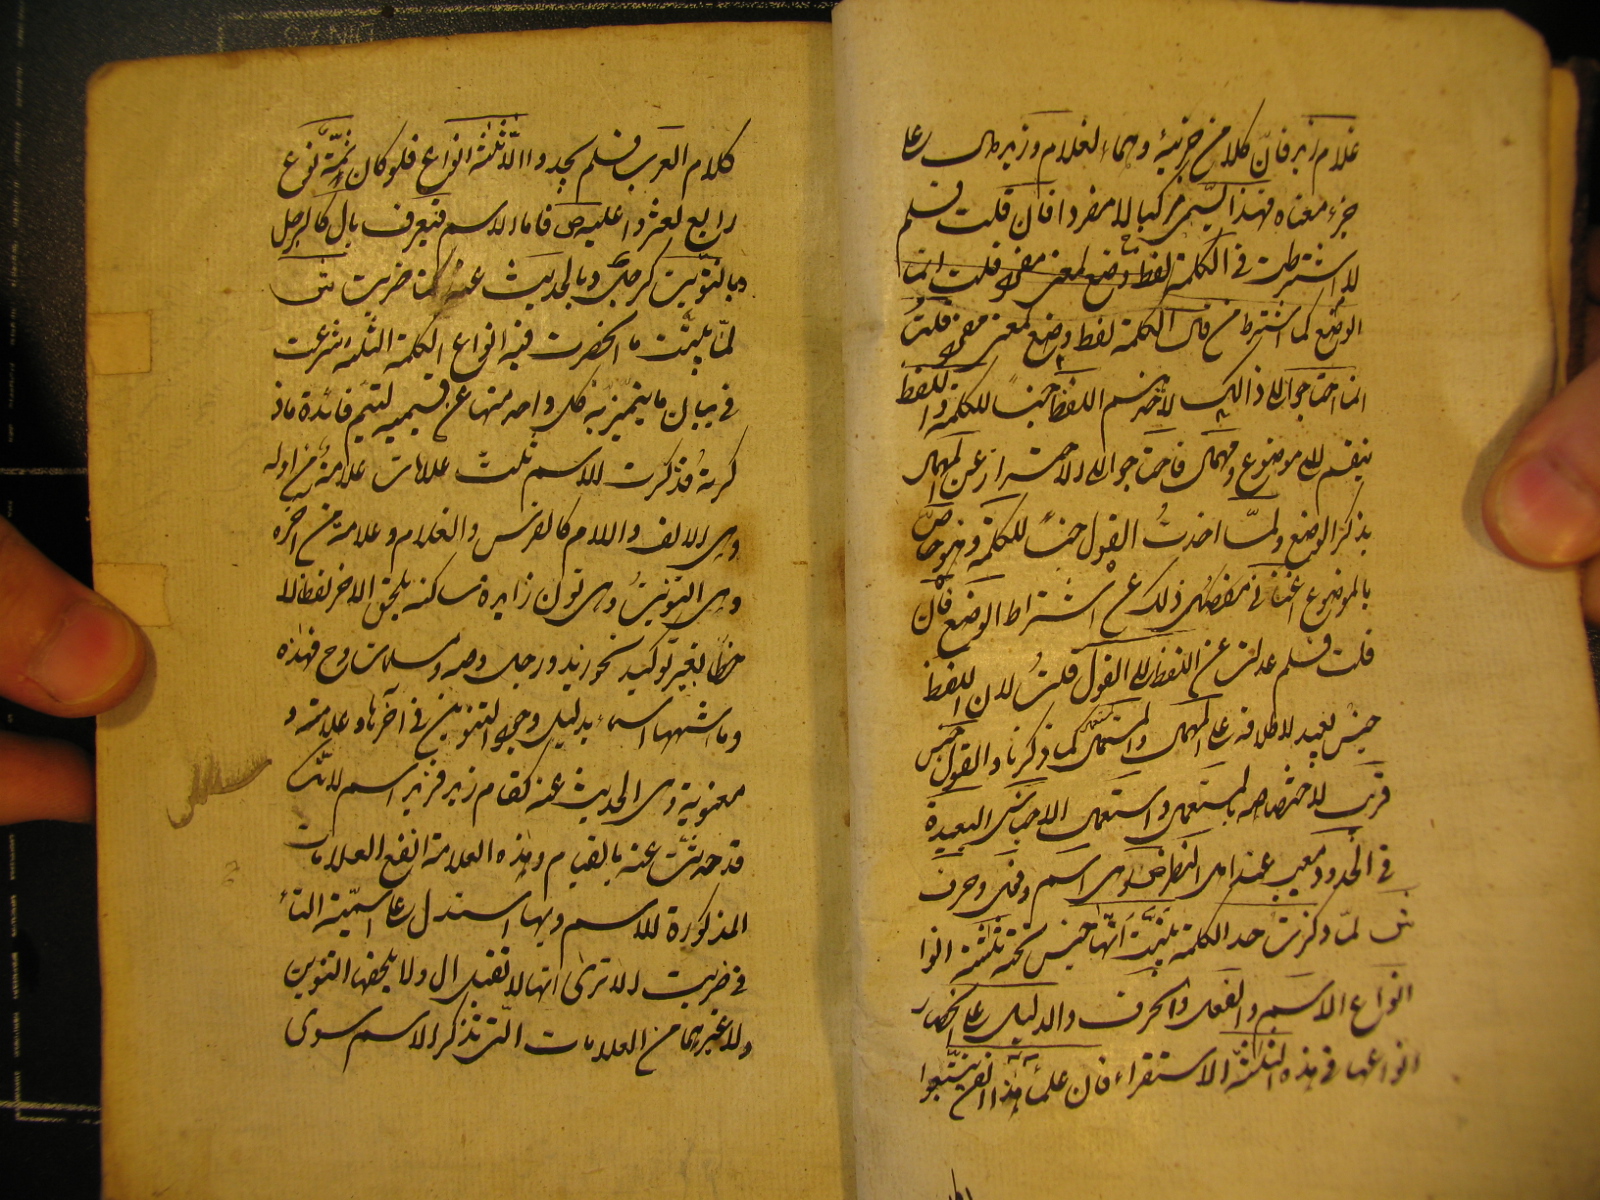 غلام زيد فان كلا من جزئيه وهما الغلام وزيد دال على
جزء معناه فهذا يسمى مركبا لا مفردا فان قلت فلم
لا اشترطت فى الكلمة لفظ وضع لمعنى مفرد قلت انما
الوضع كما اشترط من قال الكلمة لفظ وضع لمعنى مفرد قلت
انما احتاجوا الى ذالك لاخذهم اللفظ جنسا للكلمة واللفظ
ينقسم الى موضوع ومهمل فاحتاجوا الى الاحتراز عن المهمل
بذكر الوضع ولما اخذت القول جنسا للكلمة وهو خاص
بالموضوع اغنانى ذلك عن اشتراط الوضع فان
قلت فلم عدلت عن اللفظ الى القول قلت لان اللفظ
جنس بعيد لاطلاقه على المهمل والمستعمل كما ذكرنا والقول جنس
قريب لاختصاصه بالمستعمل واستعمال الاجناس البعيدة
فى الحدود معيب عند اهل النظر ص وهى اسم وفعل وحرف
ش لما ذكرت حد الكلمة بينت انها جنس تحته ثلثة انوا
انواع الاسم والفعل والحرف والدليل على انحصار
انواعها فى هذه الثلثة الاستقراء فان علماء هذا الفن تتبعوا
كلام العرب فلم يجدوا الا ثلثة انواع فلو كان ثمة نوع
رابع لعثروا عليه ص فاما الاسم فيعرف بال كالرجل
وبالتنوين كرجل وبالحديث عنه كتاء ضربت ش
لما بينت ما انحصرت فيه انواع الكلمة الثلثة شرعت
فى بيان ما يتميز به كل واحد منها عن قسيميه لتتم فائدة ماذ
كرته فذكرت للاسم ثلث علامات علامة من اوله
وهى الالف واللام كالفرس والغلام وعلامة من اخره
وهى التنوين وهى نون زايدة ساكنة يلحق الاخر لفظا لا
خطا لغير توكيد نحو زيد ورجل وصه ومسلمات وح فهذه
وما اشبهها اسماء بدليل وجود التنوين فى آخرها وعلامة و
معنوية وهى الحديث عنه كقام زيد فزيد اسم لانك
قد حدثت عنه بالقيام وهذه العلامة انفع العلامات
المذكورة للاسم وبها استدل على اسمية التاء
فى ضربت الا ترى انها لا تقبل ال ولا يلحقها التنوين
ولا غيرهما من العلامات التى تذكر الاسم سوى